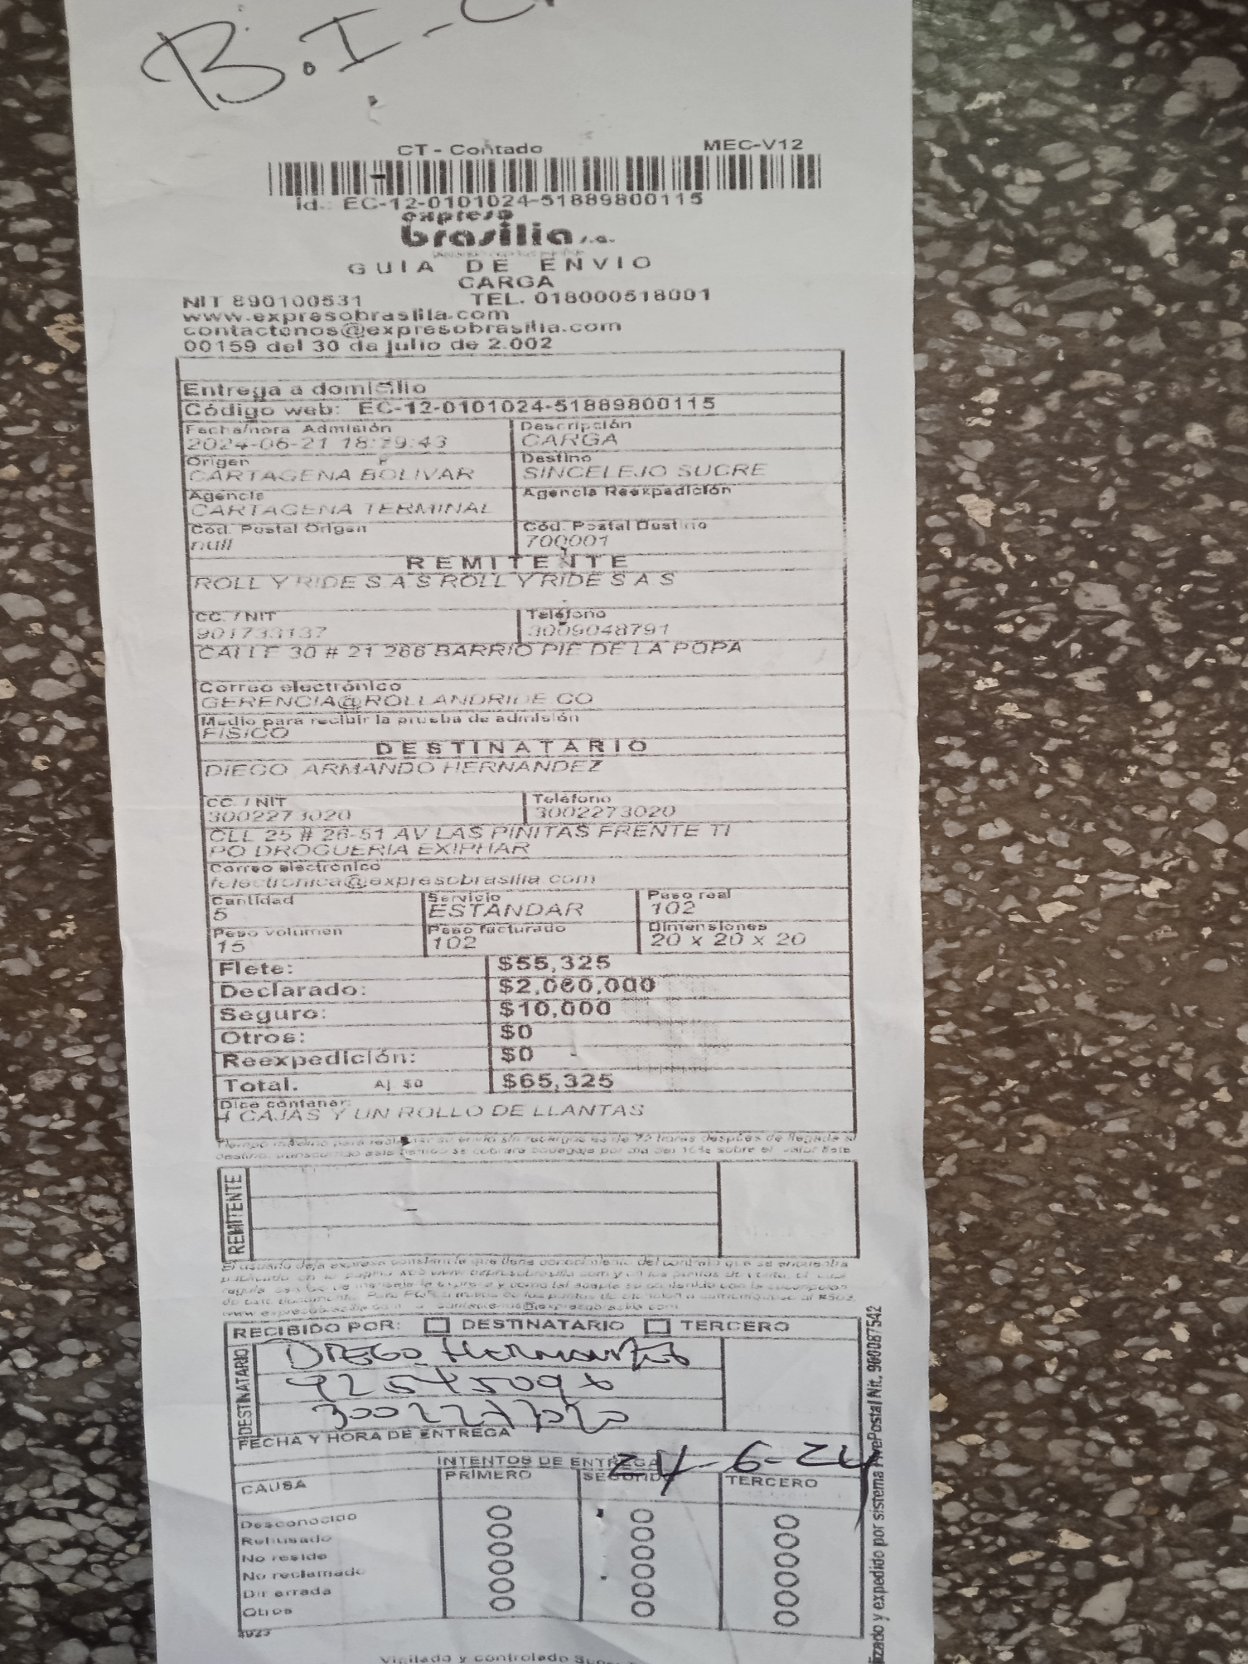 B.I-
CT - Contado MEC-V12
Id.: EC-12-0101024-51889800115
expreso
brasilia s.a.
GUIA DE ENVIO
CARGA
NIT 890100531 TEL. 018000518001
www.expresobrasilia.com
contactenos@expresobrasilia.com
00159 del 30 de julio de 2.002
Entrega a domicilio
Código web: EC-12-0101024-51889800115
Fecha/hora Admisión Descripción
2024-06-21 18:29:43 CARGA
Origen Destino
CARTAGENA BOLIVAR SINCELEJO SUCRE
Agencia Agencia Reexpedición
CARTAGENA TERMINAL
Cód. Postal Origen Cód. Postal Destino
null 700001
REMITENTE
ROLL Y RIDE S A S ROLL Y RIDE S A S
CC. / NIT Teléfono
901733137 3009048791
CALLE 30 # 21 286 BARRIO PIE DE LA POPA
Correo electrónico
GERENCIA@ROLLANDRIDE.CO
Medio para recibir la prueba de admisión
FISICO
DESTINATARIO
DIEGO ARMANDO HERNANDEZ
CC. / NIT Teléfono
3002273020 3002273020
CLL 25 # 26-51 AV LAS PINITAS FRENTE TI
PO DROGUERIA EXIPHAR
Correo electrónico
felectronica@expresobrasilia.com
Cantidad Servicio Peso real
5 ESTANDAR 102
Peso volumen Peso facturado Dimensiones
15 102 20 x 20 x 20
Flete: $55,325
Declarado: $2,060,000
Seguro: $10,000
Otros: $0
Reexpedición: $0
Total. Aj $0 $65,325
Dice contener:
4 CAJAS Y UN ROLLO DE LLANTAS
REMITENTE
RECIBIDO POR: DESTINATARIO TERCERO
DESTINATARIO
DIEGO Hernandez
92545096
3002273020
FECHA Y HORA DE ENTREGA
24-6-24
INTENTOS DE ENTREGA
CAUSA PRIMERO SEGUNDO TERCERO
Desconocido
Rehusado
No reside
No reclamado
Dir errada
Otros
Vigilado y controlado
izado y expedido por sistema Nit. 900087542